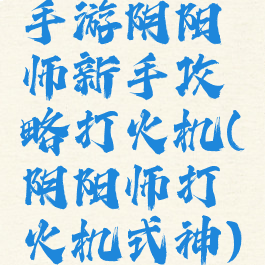 手游阴阳
师新手攻
略打火机(
阴阳师打
火机式神)